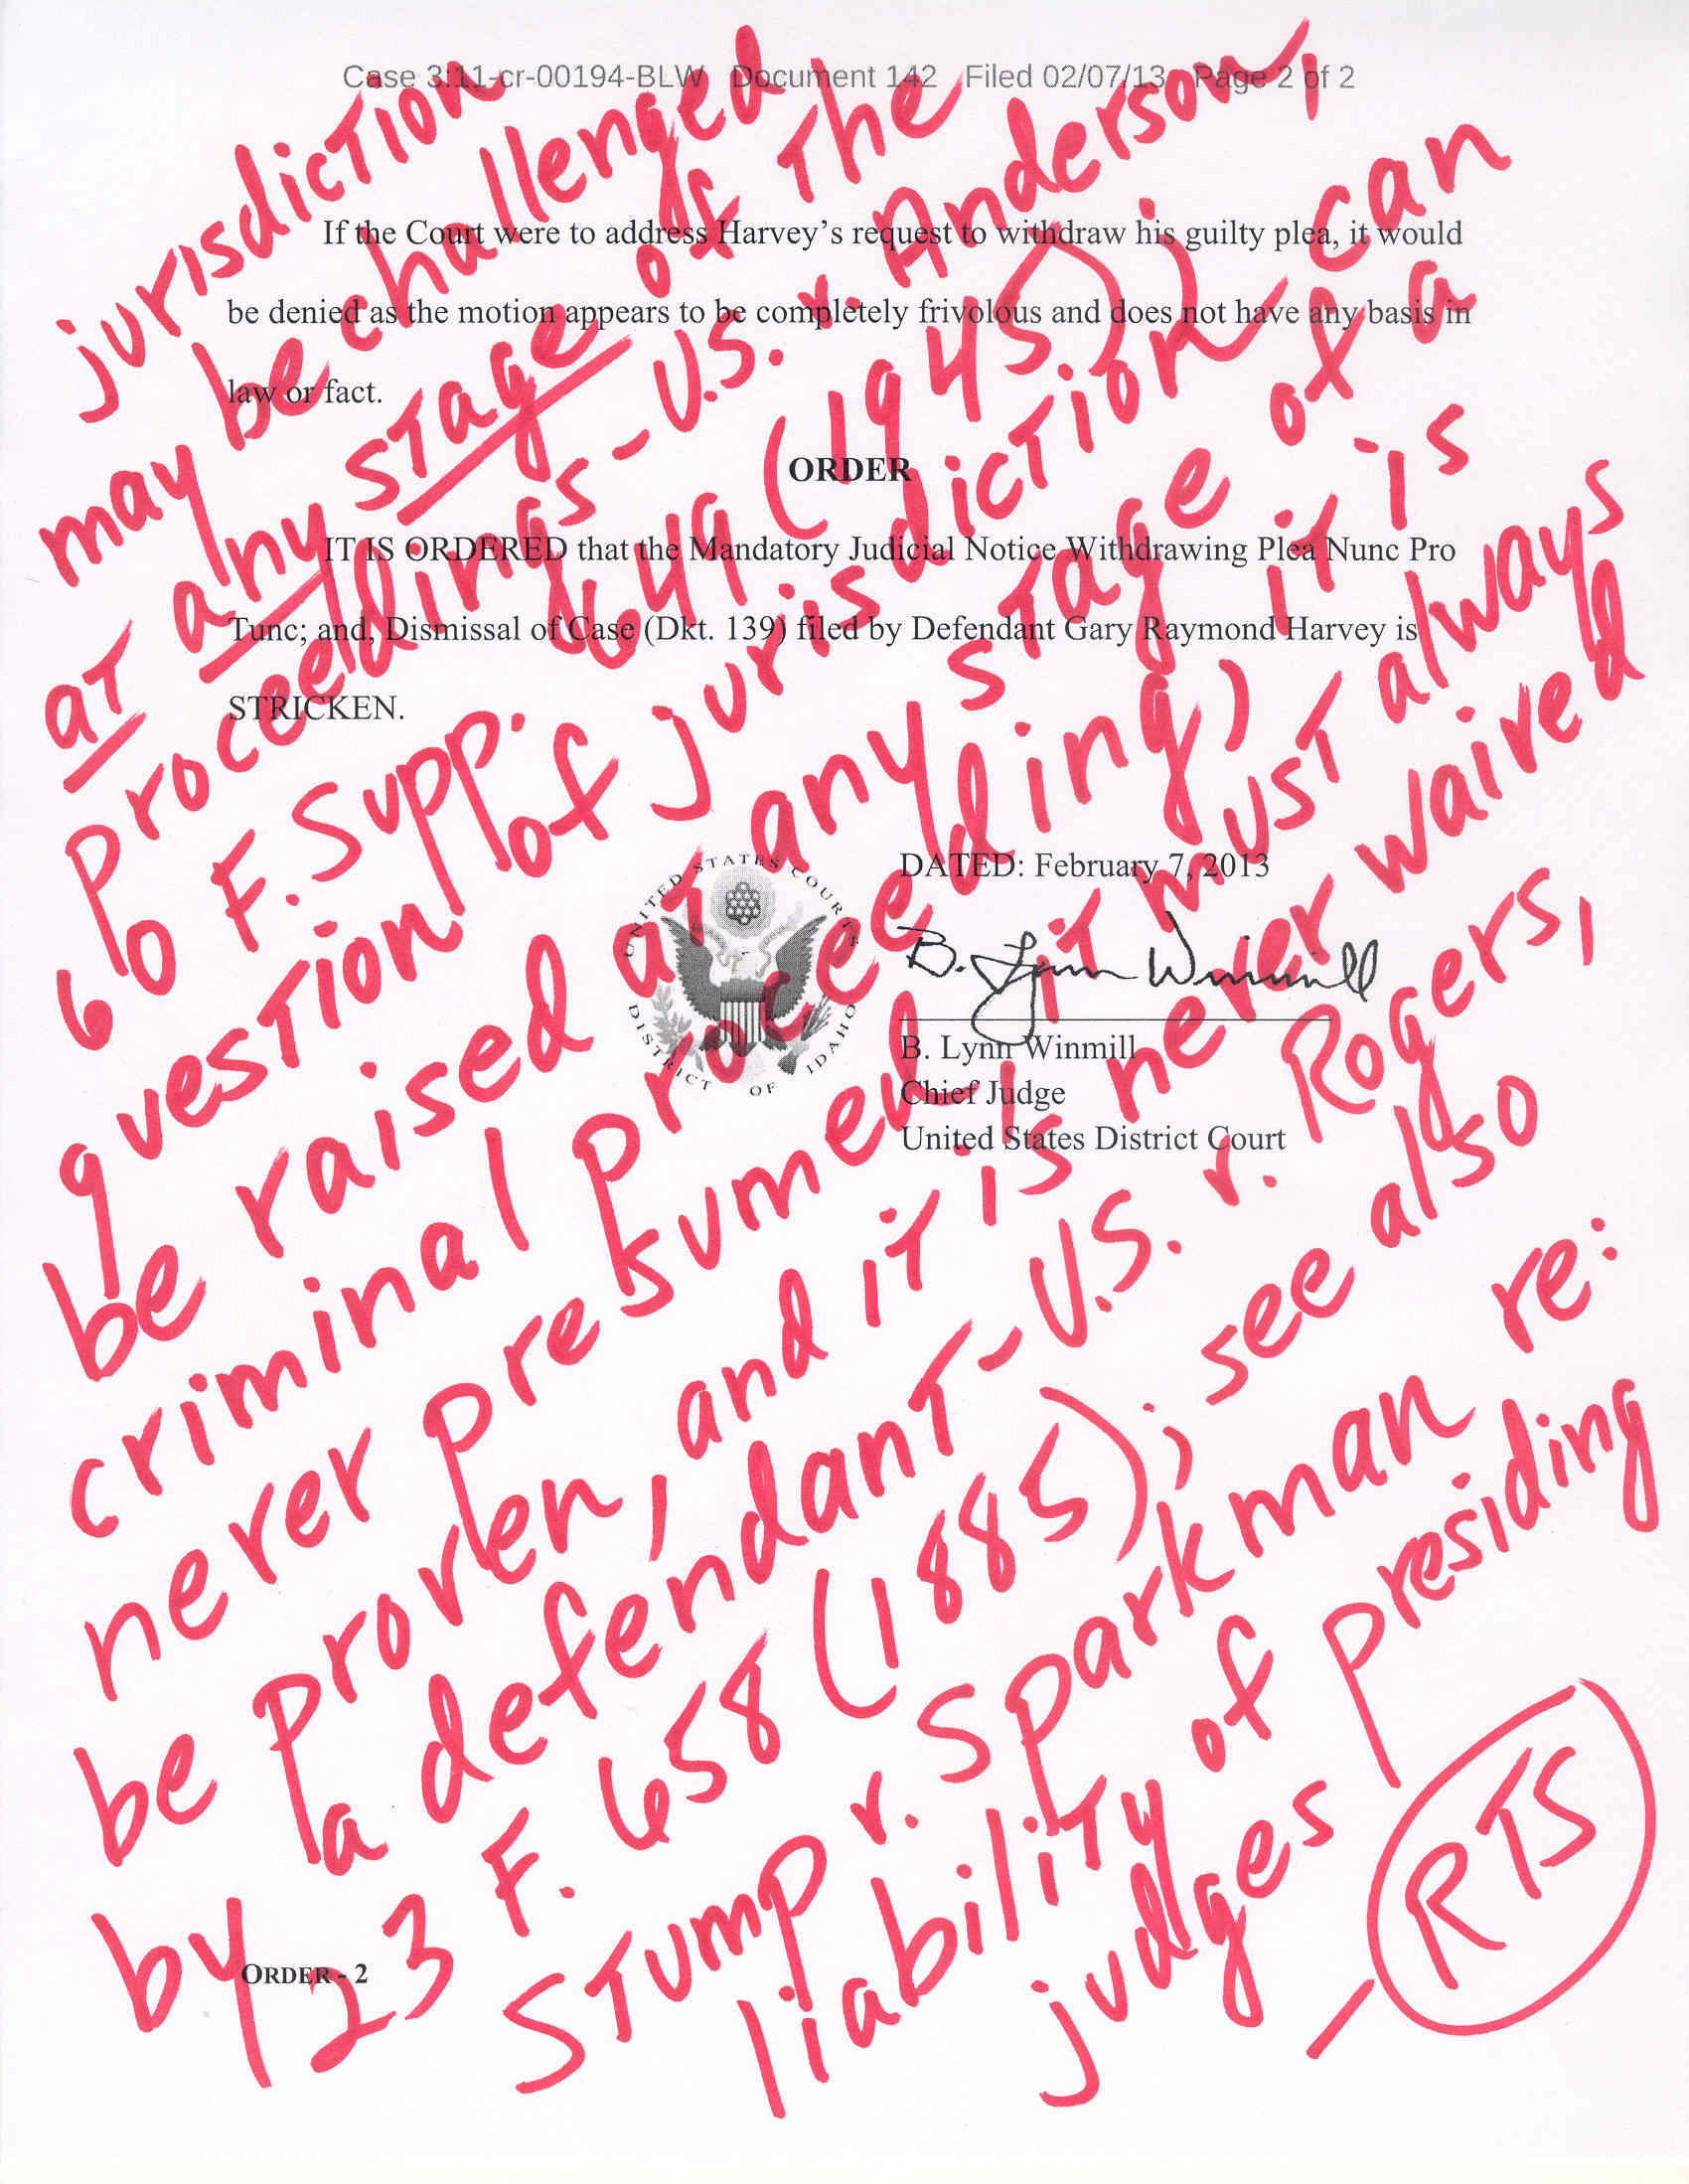 Case 3:11-cr-00194-BLW Document 142 Filed 02/07/13 Page 2 of 2
If the Court were to address Harvey's request to withdraw his guilty plea, it would
be denied as the motion appears to be completely frivolous and does not have any basis in
law or fact.
ORDER
IT IS ORDERED that the Mandatory Judicial Notice Withdrawing Plea Nunc Pro
Tunc; and, Dismissal of Case (Dkt. 139) filed by Defendant Gary Raymond Harvey is
STRICKEN.
UNITED STATES COURTS
DISTRICT OF IDAHO
DATED: February 7, 2013
B. Lynn Winmill
B. Lynn Winmill
Chief Judge
United States District Court
ORDER - 2
jurisdiction
may be challenged
at any stage of the
proceedings - U.S. v. Anderson,
60 F. Supp. 649 (1945);
question of jurisdiction can
be raised at any stage of a
criminal proceeding; it is
never presumed, it must always
be proven, and it is never waived
by a defendant - U.S. v. Rogers,
23 F. 658 (1885); see also
Stump v. Sparkman re:
liability of presiding
judges
- RTS